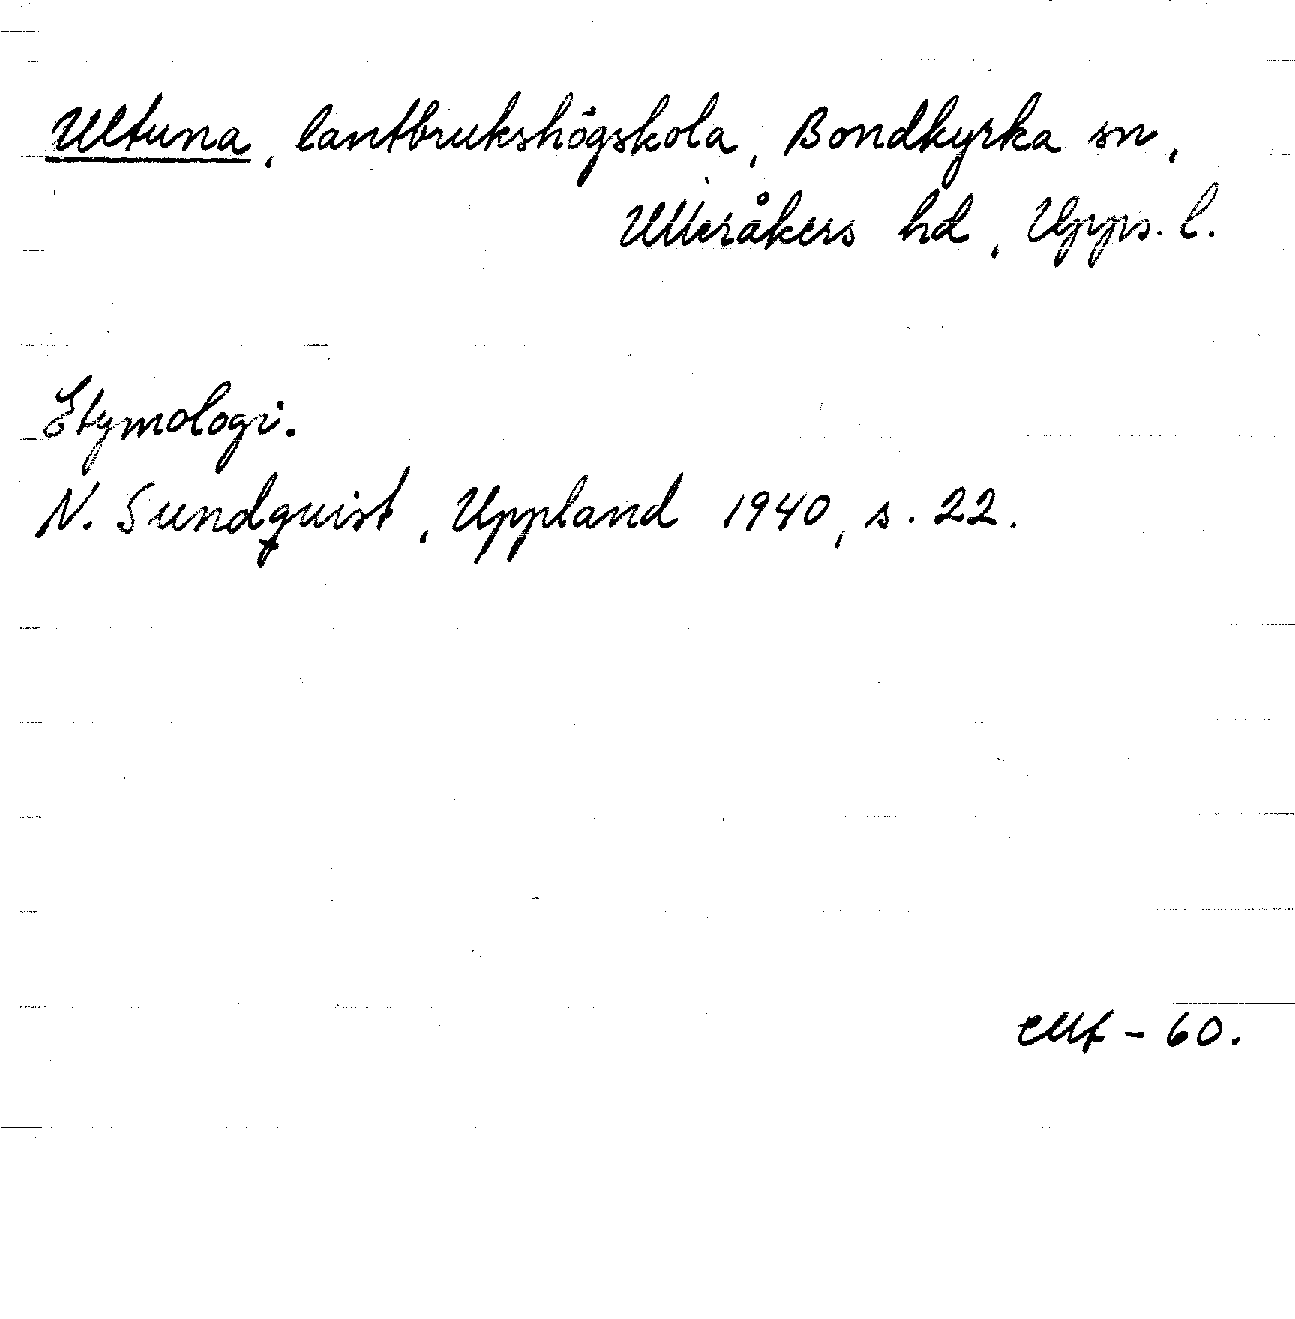 Ultuna, lantbrukshögskola, Bondkyrka sn,
Ulleråkers hd, Upps. l.
Etymologi.
N. Sundquist, Uppland 1940, s. 22.
- 60.